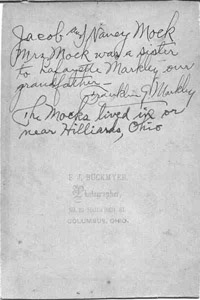 Jacob and Nancy Mock
Mrs Mock was a sister
to Lafayette Markley our
grandfather —
Franklin J Markley
The Mocks lived in or
near Hilliards, Ohio
Photographer,
COLUMBUS, OHIO.